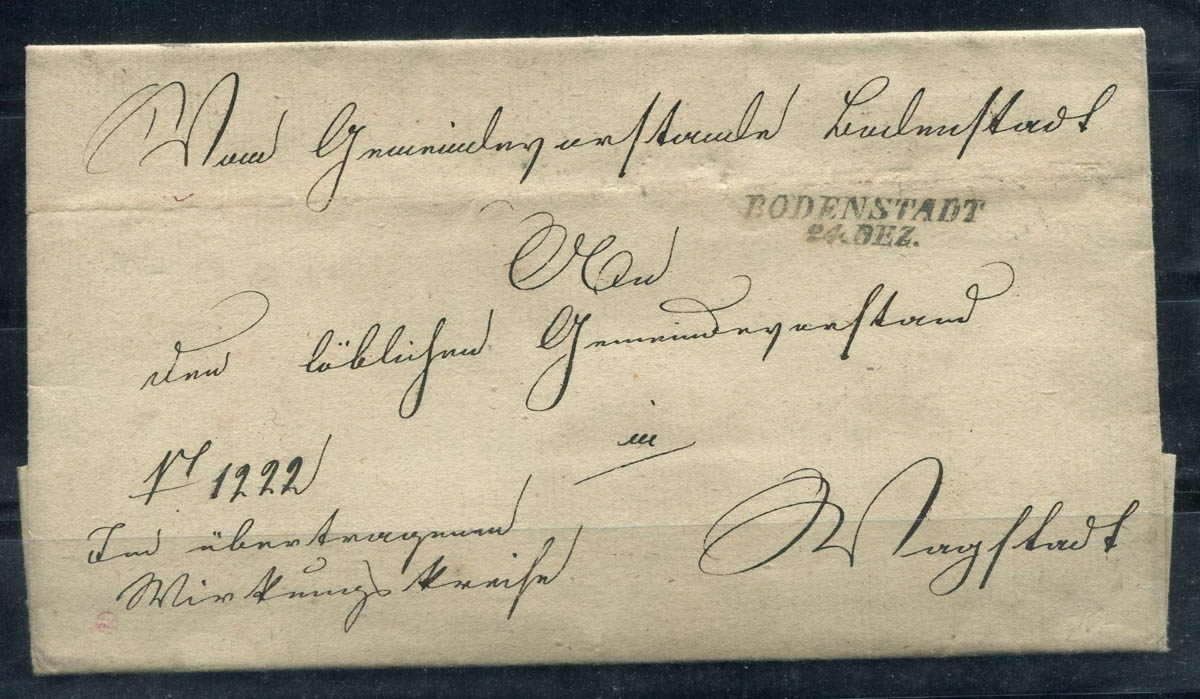 Vom Gemeindevorstande Bodenstadt
BODENSTADT
24. DEZ.
An
den löblichen Gemeindevorstand
in
Wagstadt
Nº 1222
Im übertragenen
Wirkungskreise